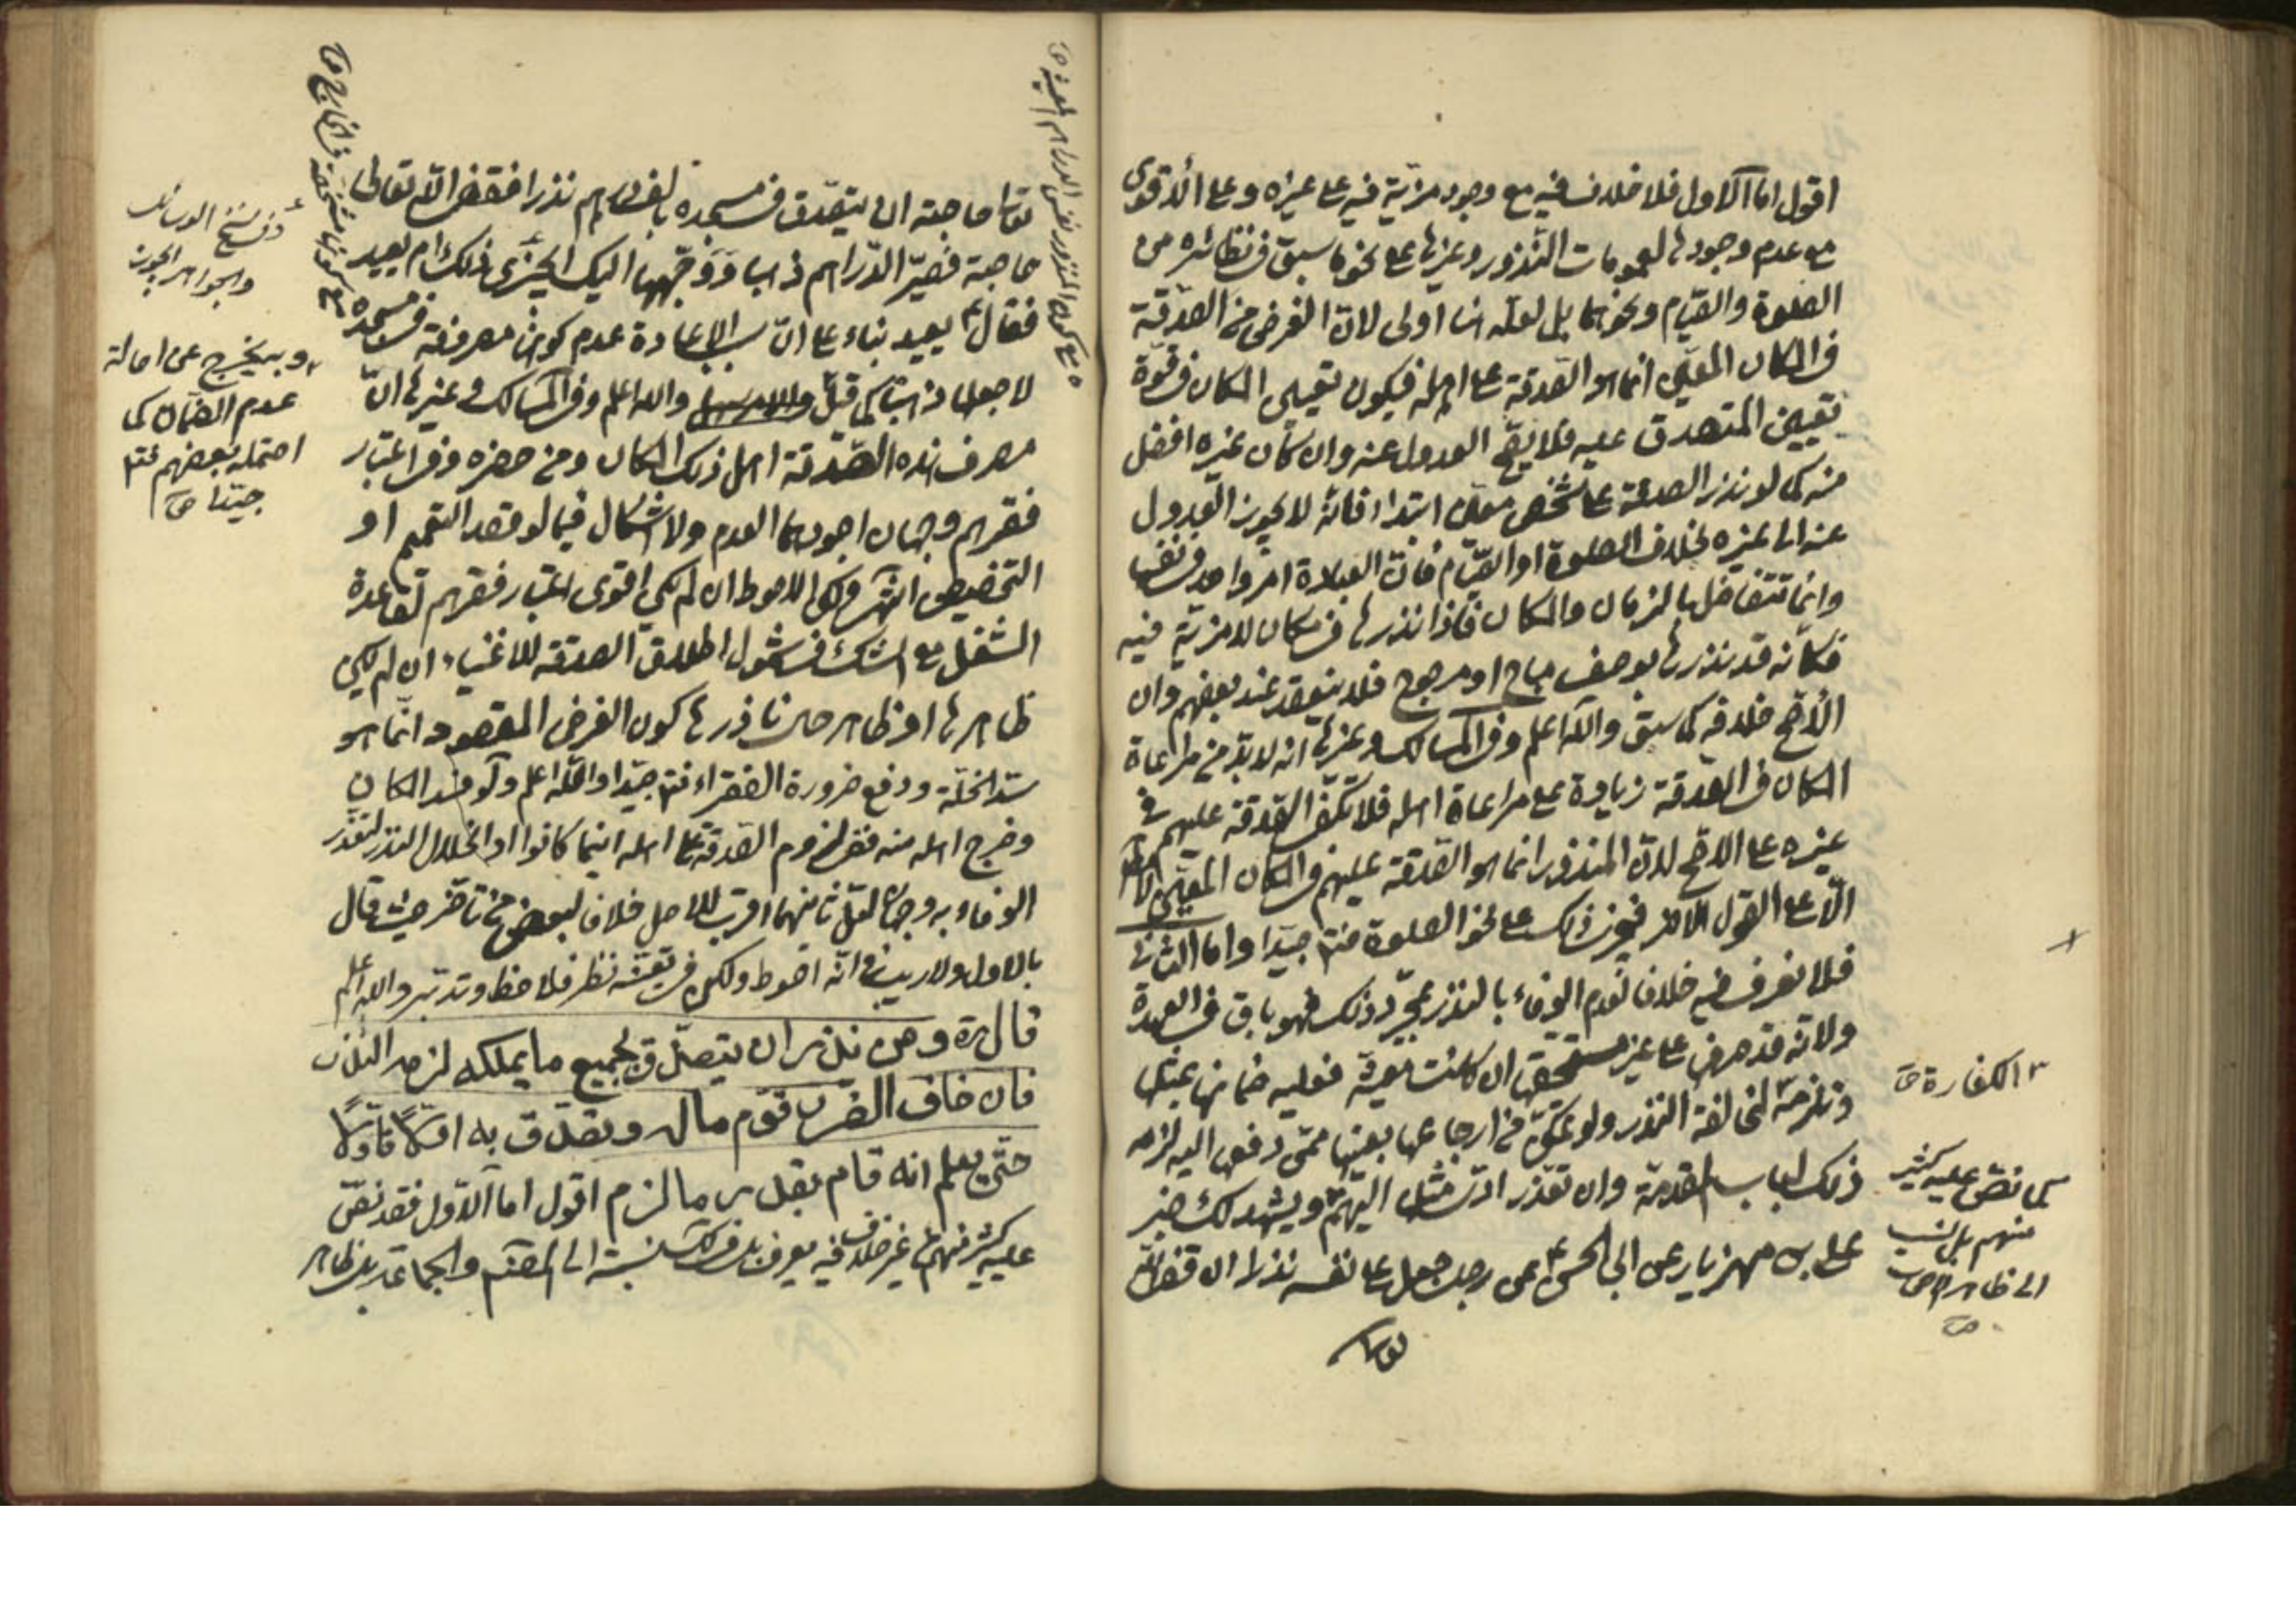 اقول اما الاول فلا خلاف فيه مع وجود مزيّة فيه على غيره وعلى الأقوى
مع عدم وجودها لعمومات النّذور وغيرها على نحو ما سبق في نظائره من
الصلوة والصّيام ونحوهما بل لعلّه هنا اولى لانّ الغرض من الصّدقة
في المكان المعيّن انما هو الصّدقة على اهله فيكون تعيين المكان في قوّة
تعيين المتصدق عليه فلا يصحّ العدول عنه وان كان غيره افضل
منه كما لو نذر الصدقة على شخص معيّن ابتداء فانّه لا يجوز العدول
عنه الى غيره بخلاف الصلوة او الصّيام فانّ العبادة امر واحد في نفسه
وانّما تتفاضل بالزمان والمكان فاذا نذرها في مكان لا مزيّة فيه
فكأنه قد نذرها بوصف مباح او مرجوح فلا ينعقد عند بعضهم وان
الأصّح خلافه كما سبق واللّه اعلم وفي المسالك وغيرها انه لا بدّ من مراعاة
المكان في الصّدقة زيادة على مراعاة اهله فلا تكفي الصّدقة عليهم في
غيره على الاصّح لانّ المنذور انما هو الصّدقة عليهم في المكان المعيّن
الّا على القول الآخر فيجوز ذلك على نحو الصلوة فتدبّر جيّدا واما الثاني
فلا نعرف فيه خلافا لعدم الوفاء بالنذر بمجرّد ذلك فهو باق في العهدة
ولانّه قد صرف على غير مستحقها ان كانت معيّنة فعليه ضمانها بمثلها
وتلزمه لمخالفة النّذر ولو تمكّن من ارجاعها بعينها ممّن دفعها اليه لزمه
ذلك من باب المقدمّة وان تعذّر ادّى مثلها اليهم ويشهد لك خبر
علي بن مهزيار عن ابي الحسن ع عن رجل جعل على نفسه نذرا ان قضى اللّه
الكفارة صح
كما نصّ عليه كثير
منهم بل نسب
الى ظاهر الاصحاب
صح
تعالى حاجته ان يتصدّق في مسجده بالف درهم نذرا فقضى اللّه تعالى
حاجته فصيّر الدّراهم ذهبا ووجّهها اليك ايجزى ذلك ام يعيد
فقال ع يعيد بناء على انّ سبب الاعادة عدم كونها مصروفة في مسجده
لا جعلها ذهبا كما قيل واللّه اعلم وفي المسالك وغيرها انّ
مصرف هذه الصّدقة اهل ذلك المكان ومن حضره وفي اعتبار
فقرهم وجهان اجودهما العدم ولا اشكال فيما لو قصد التعميم او
التخصيص انتهى ولكن الاحوط ان لم يكن اقوى اعتبار فقرهم لقاعدة
الشغل مع الشك في شمول اطلاق الصدقة للاغنياء ان لم يكن
ظاهرها او ظاهر حال ناذرها كون الغرض المقصود انّما هو
سدّ الخلّة ودفع ضرورة الفقراء فتدبّر جيّدا واللّه اعلم ولو فسد المكان
وخرج اهله منه ففي لزوم الصّدقة على اهله اينما كانوا او انحلال النذر لتعذّر
الوفاء به وجهان لعلّ ثانيهما اقرب للاصل خلافا لبعض من تاخّر حيث قال
بالاول ولا ريب في انّه احوط ولكن في تعيّنه نظر فلاحظ وتدبّر واللّه اعلم
قال ره ومن نذر ان يتصدّق بجميع ما يملكه لزمه النذر
فان خاف الضرر قوّم ماله وتصدّق به اوّلًا فاوّلًا
حتّى يعلم انه قام بقدر ما لزم اقول اما الاوّل فقد نصّ
عليه كثير منهم من غير خلاف فيه يعرف بل في ذلك نسبته الى المقنع والجماعة بل ظاهر
في نسخ الوسائل
والجواهر
وبه يخرج عن اصالة
عدم الضمان كما
احتمله بعضهم فتدبّر
جيّدا صح